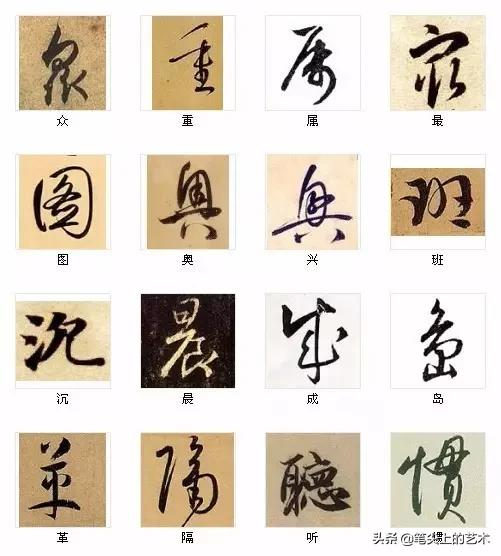 众 重 属 最
图 奥 兴 班
沉 晨 成 岛
革 隔 听 惯
头条 @笔尖上的艺术